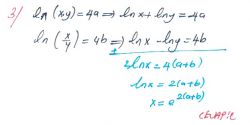 3/ ln (x,y)=4a ⇒ lnx+lny=4a
ln (x/y)=4b ⇒ lnx-lny=4b
2lnx=4(a+b)
lnx=2(a+b)
x=a^2(a+b)